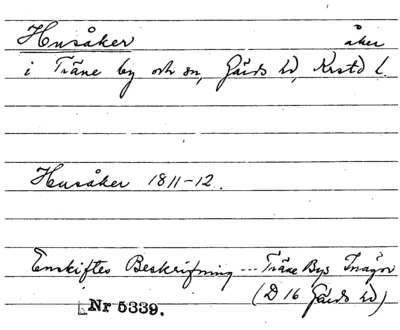 Husåker åker
i Träne by och sn, Gärds hd, Krstd l.
Husåker 1811-12.
Enskiftes Beskrifning --- Träne Bys Inägor
(D 16 Gärds hd)
Nr 5339.